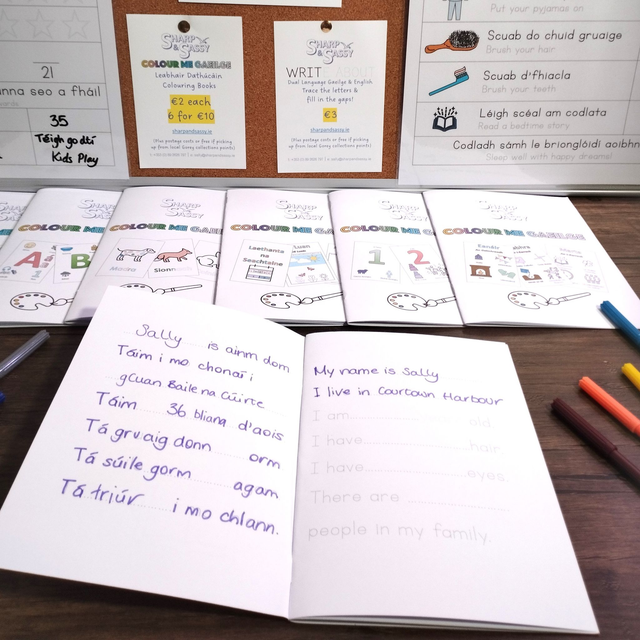 21
nna seo a fháil
35
Téigh go dtí
Kids Play
SHARP
& SASSY
COLOUR ME GAEILGE
Leabhair Dathúcháin
Colouring Books
€2 each
6 for €10
sharpandsassy.ie
(Plus postage costs or free if picking
up from local Gorey collections points)
SHARP
& SASSY
WRITE ABOUT
Dual Language Gaeilge & English
Trace the letters &
fill in the gaps!
€3
sharpandsassy.ie
(Plus postage costs or free if picking
up from local Gorey collections points)
Put your pyjamas on
Scuab do chuid gruaige
Brush your hair
Scuab d'fhiacla
Brush your teeth
Léigh scéal am codlata
Read a bedtime story
Codladh sámh le brionglóidí aoibhn
Sleep well with happy dreams!
SHARP
& SASSY
COLOUR ME
A B
SHARP
& SASSY
COLOUR ME GAEI
Madra Sionn
SHARP
& SASSY
COLOUR ME GAEIL
Laethanta
na
Seachtaine
Luan
SHARP
& SASSY
COLOUR ME GAE
1 2
SHARP
& SASSY
COLOUR ME GAEILGE
Sally is ainm dom
Táim i mo chonaí i
gCuan Baile na Cúirte
Táim 36 bliana d'aois
Tá gruaig donn orm
Tá súile gorm agam
Tá triúr i mo chlann.
My name is Sally
I live in Courtown Harbour
I am old
I have hair
I have eyes.
There are
people in my family.